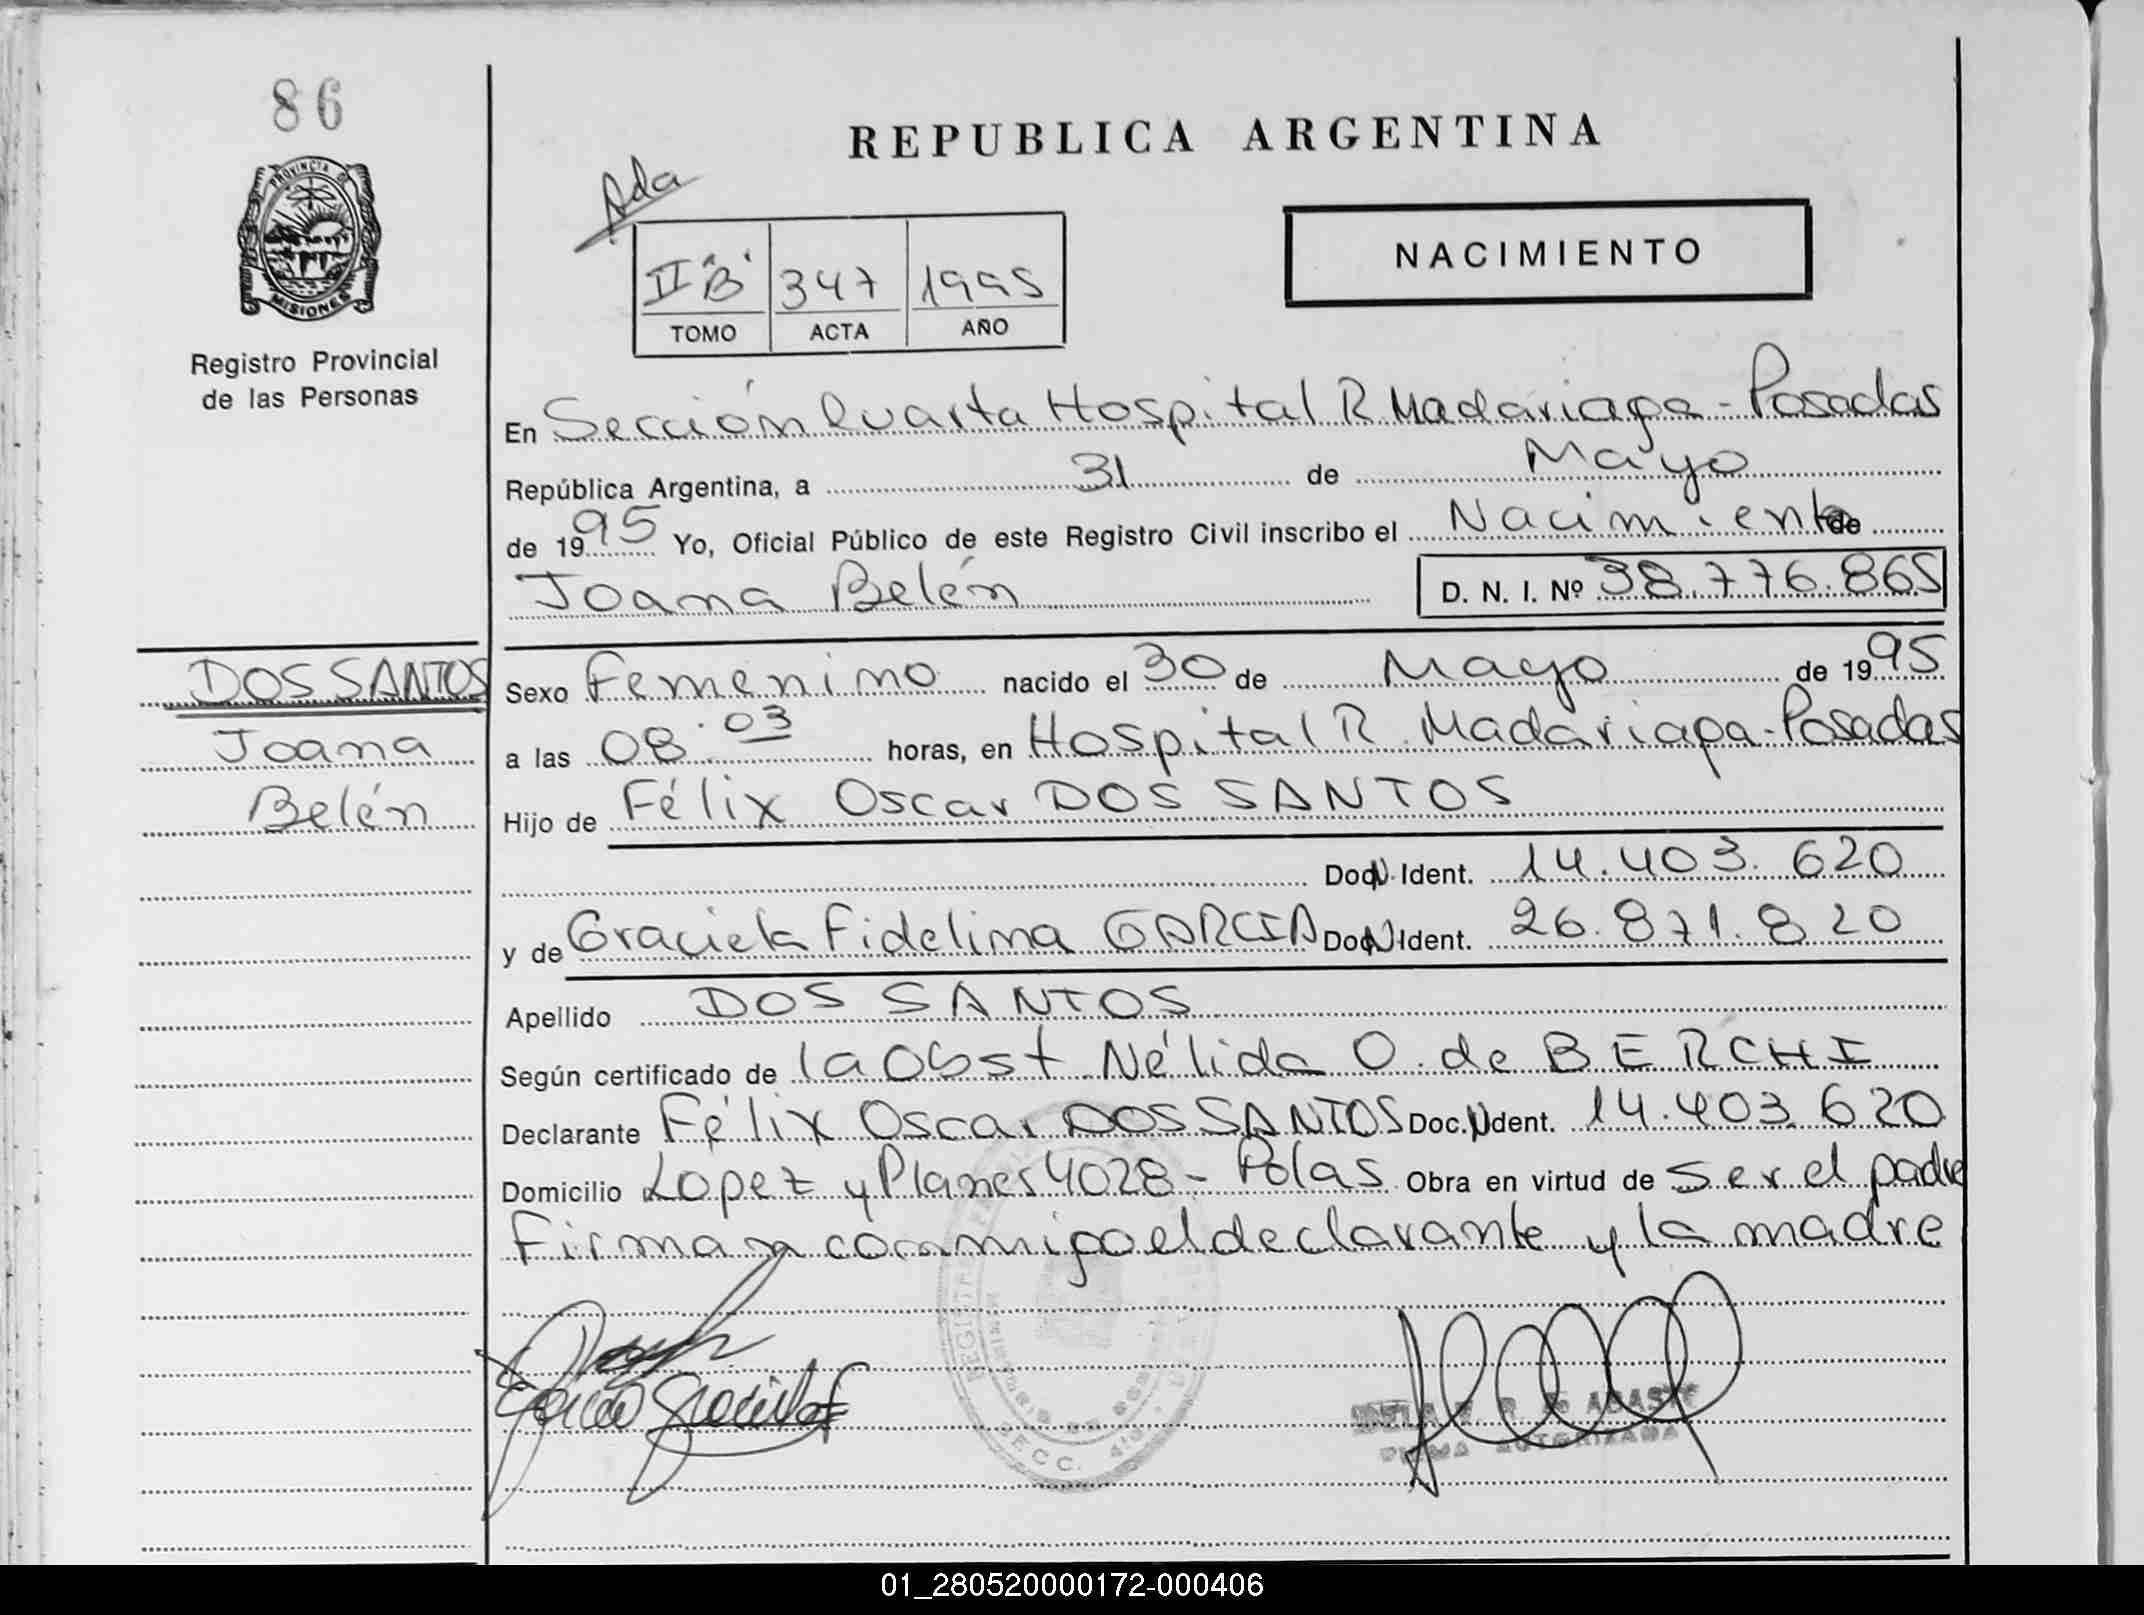 86
PROVINCIA DE
MISIONES
Registro Provincial
de las Personas
REPUBLICA ARGENTINA
Ada
NACIMIENTO
II "B" 347 1995
TOMO ACTA AÑO
En Sección Cuarta Hospital R. Madariaga - Posadas
República Argentina, a 31 de Mayo
de 1995 Yo, Oficial Público de este Registro Civil inscribo el Nacimiento de
Joana Belén D. N. I. Nº 38.776.865
DOS SANTOS
Joana
Belén
Sexo Femenino nacido el 30 de Mayo de 1995
a las 08:03 horas, en Hospital R. Madariaga - Posadas
Hijo de Félix Oscar DOS SANTOS
Doc. N. Ident. 14.403.620
y de Graciela Fidelina GARCIA Doc. N. Ident. 26.871.820
Apellido DOS SANTOS
Según certificado de la Obst Nélida O. de BERCHI
Declarante Félix Oscar DOS SANTOS Doc. N Ident. 14.403.620
Domicilio Lopez y Planes 4028 - Pdas Obra en virtud de ser el padre
Firman conmigo el declarante y la madre
SECC. 4ta.
01_280520000172-000406